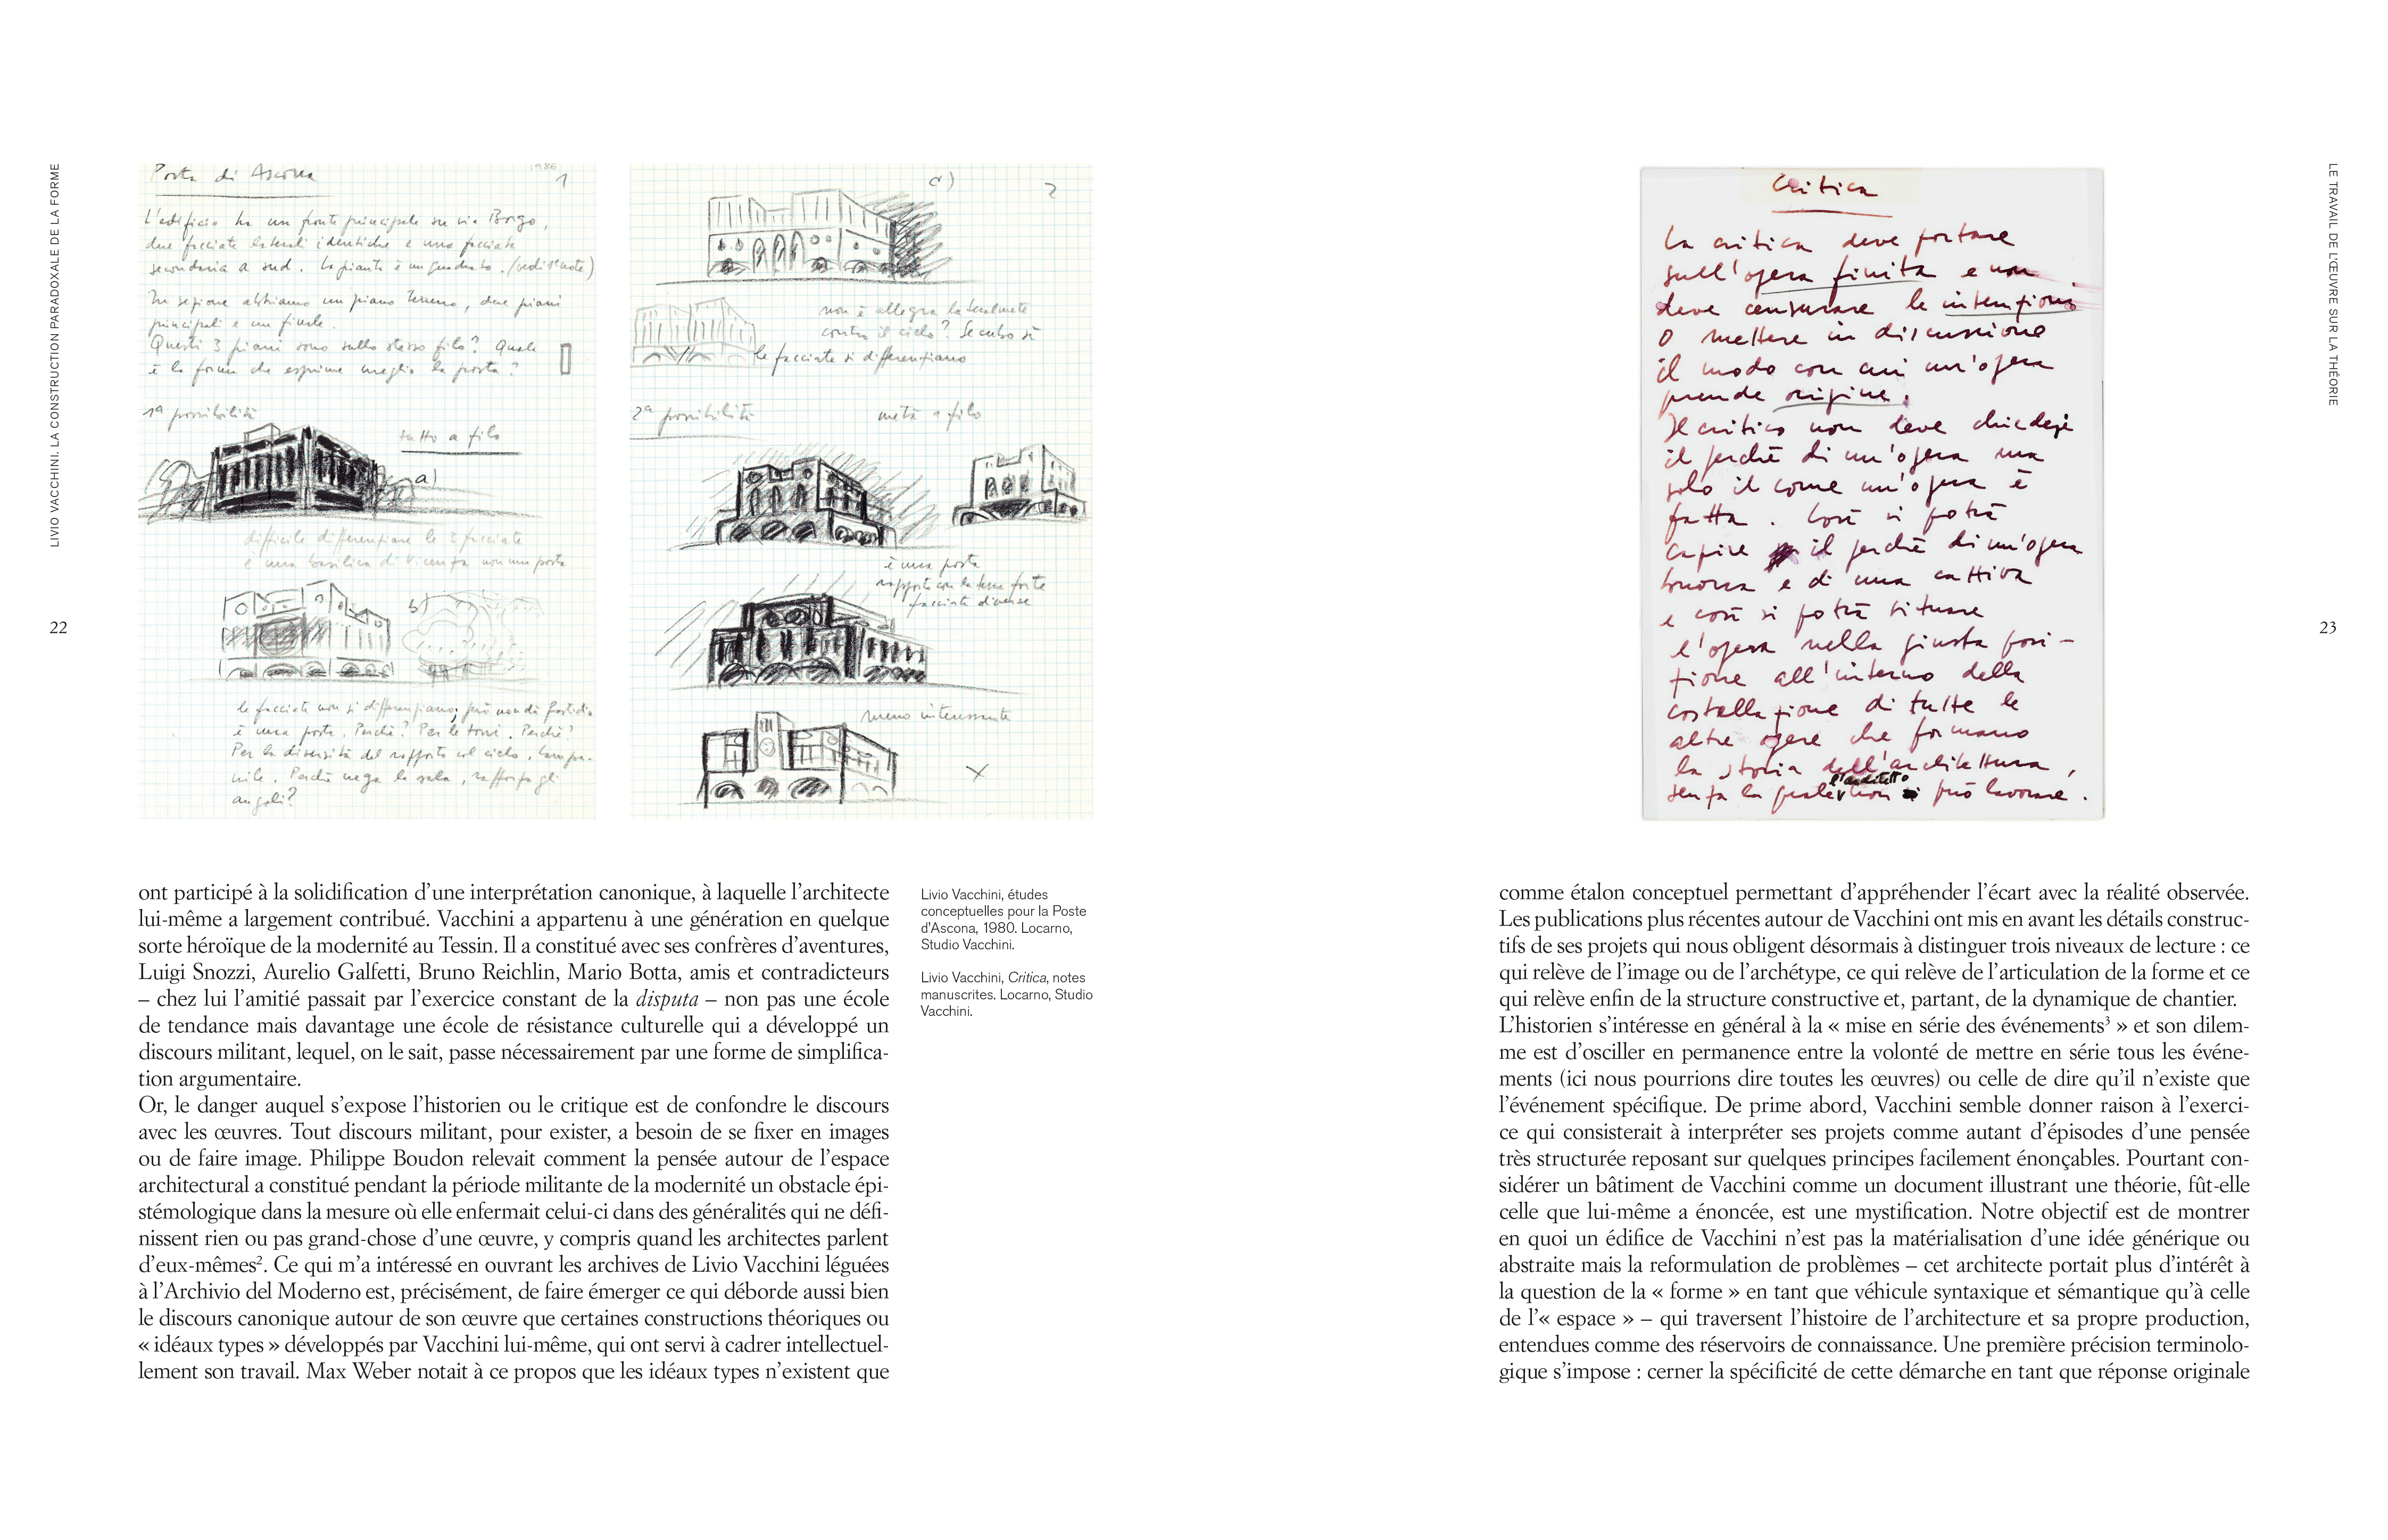 LIVIO VACCHINI. LA CONSTRUCTION PARADOXALE DE LA FORME
22
Posta di Ascona
1986
1
L'edificio ha un fronte principale su via Borgo,
due facciate laterali identiche e una facciata
secondaria a sud. La pianta è un quadrato. (vedi 1e note)
In sezione abbiamo un piano terreno, due piani
principali e un finale.
Questi 3 piani sono sullo stesso filo? Quale
è la forma che esprime meglio la posta?
1a possibilità
tutto a filo
a)
difficile differenziare le 3 facciate
è una basilica di Vicenza non una posta
b)
le facciate non si differenziano; però non dà fastidio
è una posta. Perché? Per le torri. Perché?
Per la diversità del rapporto col cielo, campa-
nile. Perché nega la sala, rafforza gli
angoli?
c)
2
non è allegra
contro il cielo? Se cubo sì
le facciate si differenziano
2a possibilità
metà a filo
è una posta
rapporto con la terra forte
facciate diverse
meno interessante
ont participé à la solidification d'une interprétation canonique, à laquelle l'architecte
lui-même a largement contribué. Vacchini a appartenu à une génération en quelque
sorte héroïque de la modernité au Tessin. Il a constitué avec ses confrères d'aventures,
Luigi Snozzi, Aurelio Galfetti, Bruno Reichlin, Mario Botta, amis et contradicteurs
– chez lui l'amitié passait par l'exercice constant de la disputa – non pas une école
de tendance mais davantage une école de résistance culturelle qui a développé un
discours militant, lequel, on le sait, passe nécessairement par une forme de simplifica-
tion argumentaire.
Or, le danger auquel s'expose l'historien ou le critique est de confondre le discours
avec les œuvres. Tout discours militant, pour exister, a besoin de se fixer en images
ou de faire image. Philippe Boudon relevait comment la pensée autour de l'espace
architectural a constitué pendant la période militante de la modernité un obstacle épi-
stémologique dans la mesure où elle enfermait celui-ci dans des généralités qui ne défi-
nissent rien ou pas grand-chose d'une œuvre, y compris quand les architectes parlent
d'eux-mêmes². Ce qui m'a intéressé en ouvrant les archives de Livio Vacchini léguées
à l'Archivio del Moderno est, précisément, de faire émerger ce qui déborde aussi bien
le discours canonique autour de son œuvre que certaines constructions théoriques ou
« idéaux types » développés par Vacchini lui-même, qui ont servi à cadrer intellectuel-
lement son travail. Max Weber notait à ce propos que les idéaux types n'existent que
Livio Vacchini, études
conceptuelles pour la Poste
d'Ascona, 1980. Locarno,
Studio Vacchini.
Livio Vacchini, Critica, notes
manuscrites. Locarno, Studio
Vacchini.
Critica
La critica deve portare
sull'opera finita e non
deve censurare le intenzioni
o mettere in discussione
il modo con cui un'opera
prende origine.
Il critico non deve chiedere
il perché di un'opera ma
solo il come un'opera è
fatta. Così si potrà
capire il perché di un'opera
buona e di una cattiva
e così si potrà situare
l'opera nella giusta posi-
zione all'interno della
costellazione di tutte le
altre opere che formano
la storia dell'architettura,
senza la quale l'architetto non può lavorare.
comme étalon conceptuel permettant d'appréhender l'écart avec la réalité observée.
Les publications plus récentes autour de Vacchini ont mis en avant les détails construc-
tifs de ses projets qui nous obligent désormais à distinguer trois niveaux de lecture : ce
qui relève de l'image ou de l'archétype, ce qui relève de l'articulation de la forme et ce
qui relève enfin de la structure constructive et, partant, de la dynamique de chantier.
L'historien s'intéresse en général à la « mise en série des événements³ » et son dilem-
me est d'osciller en permanence entre la volonté de mettre en série tous les événe-
ments (ici nous pourrions dire toutes les œuvres) ou celle de dire qu'il n'existe que
l'événement spécifique. De prime abord, Vacchini semble donner raison à l'exerci-
ce qui consisterait à interpréter ses projets comme autant d'épisodes d'une pensée
très structurée reposant sur quelques principes facilement énonçables. Pourtant con-
sidérer un bâtiment de Vacchini comme un document illustrant une théorie, fût-elle
celle que lui-même a énoncée, est une mystification. Notre objectif est de montrer
en quoi un édifice de Vacchini n'est pas la matérialisation d'une idée générique ou
abstraite mais la reformulation de problèmes – cet architecte portait plus d'intérêt à
la question de la « forme » en tant que véhicule syntaxique et sémantique qu'à celle
de l'« espace » – qui traversent l'histoire de l'architecture et sa propre production,
entendues comme des réservoirs de connaissance. Une première précision terminolo-
gique s'impose : cerner la spécificité de cette démarche en tant que réponse originale
LE TRAVAIL DE L'ŒUVRE SUR LA THÉORIE
23